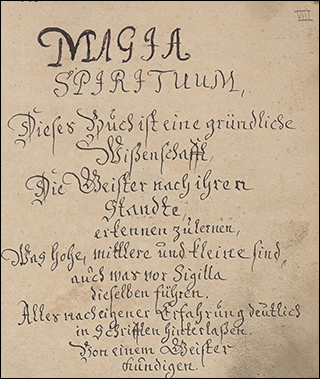 VIII
MAGIA
SPIRITUUM,
Dieses Buch ist eine gründliche
Wißenschafft,
Die Geister nach ihren
Standte,
erkennen zu lernen,
Was hohe, mittlere und kleine sind,
auch was vor Sigilla
dieselben führen.
Alles nach eigener Erfahrung deutlich
in Schrifften hinterlaßen.
Von einem Geister
kundigen.